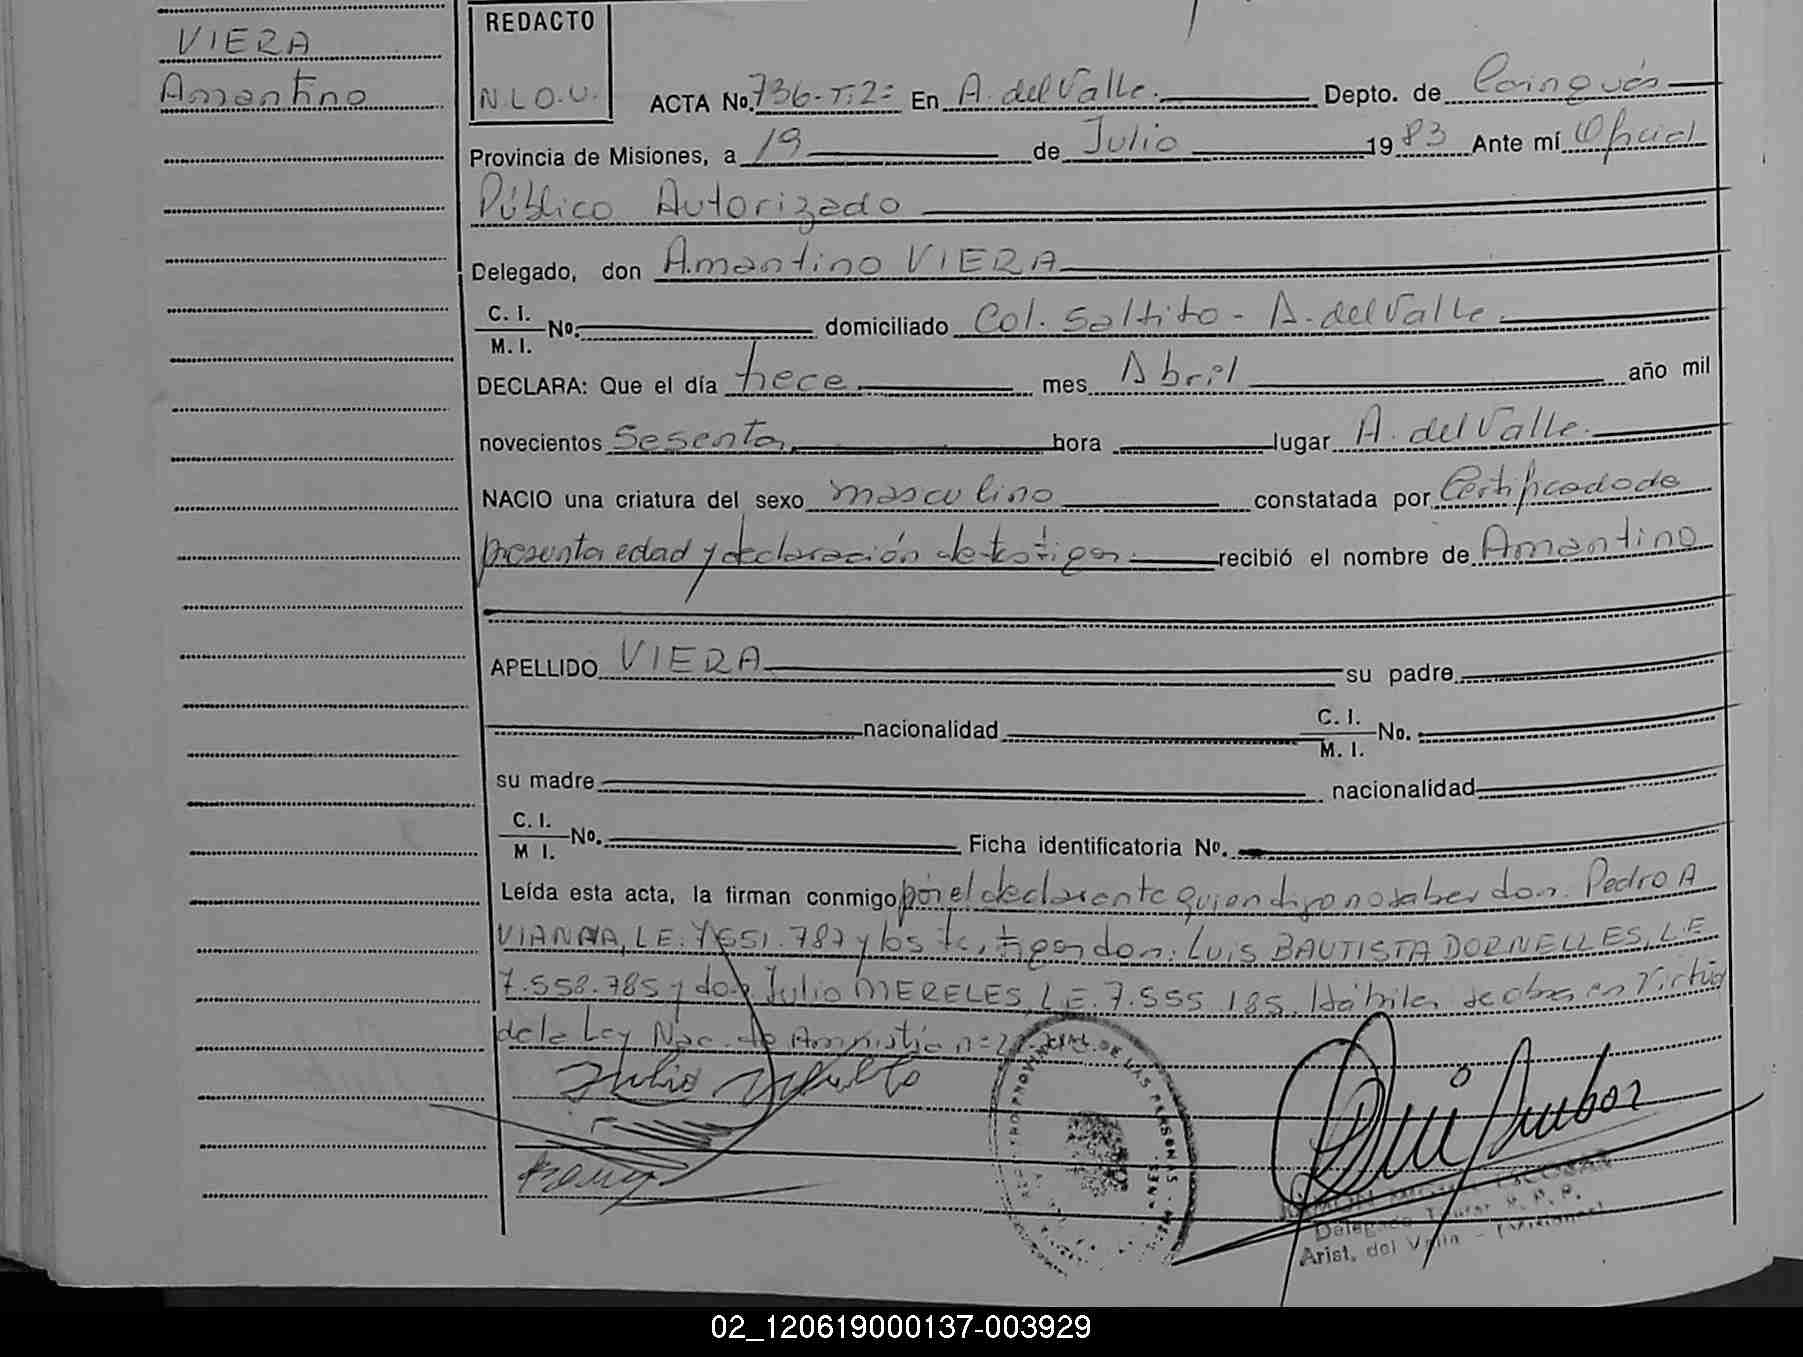 VIERA
Amantino
REDACTO
N.L.O.U.
ACTA No. 736-T:2= En A. del Valle. Depto. de Cainguás
Provincia de Misiones, a 19 de Julio 1983 Ante mí Oficial
Público Autorizado
Delegado, don Amantino VIERA
C. I.
M. I. No. domiciliado Col. Saltito - A. del Valle.
DECLARA: Que el día trece mes Abril año mil
novecientos Sesenta hora lugar A. del Valle.
NACIO una criatura del sexo masculino constatada por Certificado de
presunta edad y declaración de testigos recibió el nombre de Amantino
APELLIDO VIERA su padre
nacionalidad C. I.
M. I. No.
su madre nacionalidad
C. I.
M I. No. Ficha identificatoria No.
Leída esta acta, la firman conmigo por el declarante quien dijo no saber don. Pedro A
VIANNA, L.E. 7.551.787 y los testigos don: Luis BAUTISTA DORNELLES, L.E
7.558.785 y don Julio MERELES, L.E. 7.555.185. Hábiles de obra en Virtud
de la Ley Nac. de Amnistía n=2
Julio
PROVINCIAL DE LAS PERSONAS
Delegado R. P. P.
Arist. del Valle - (Misiones)
02_120619000137-003929